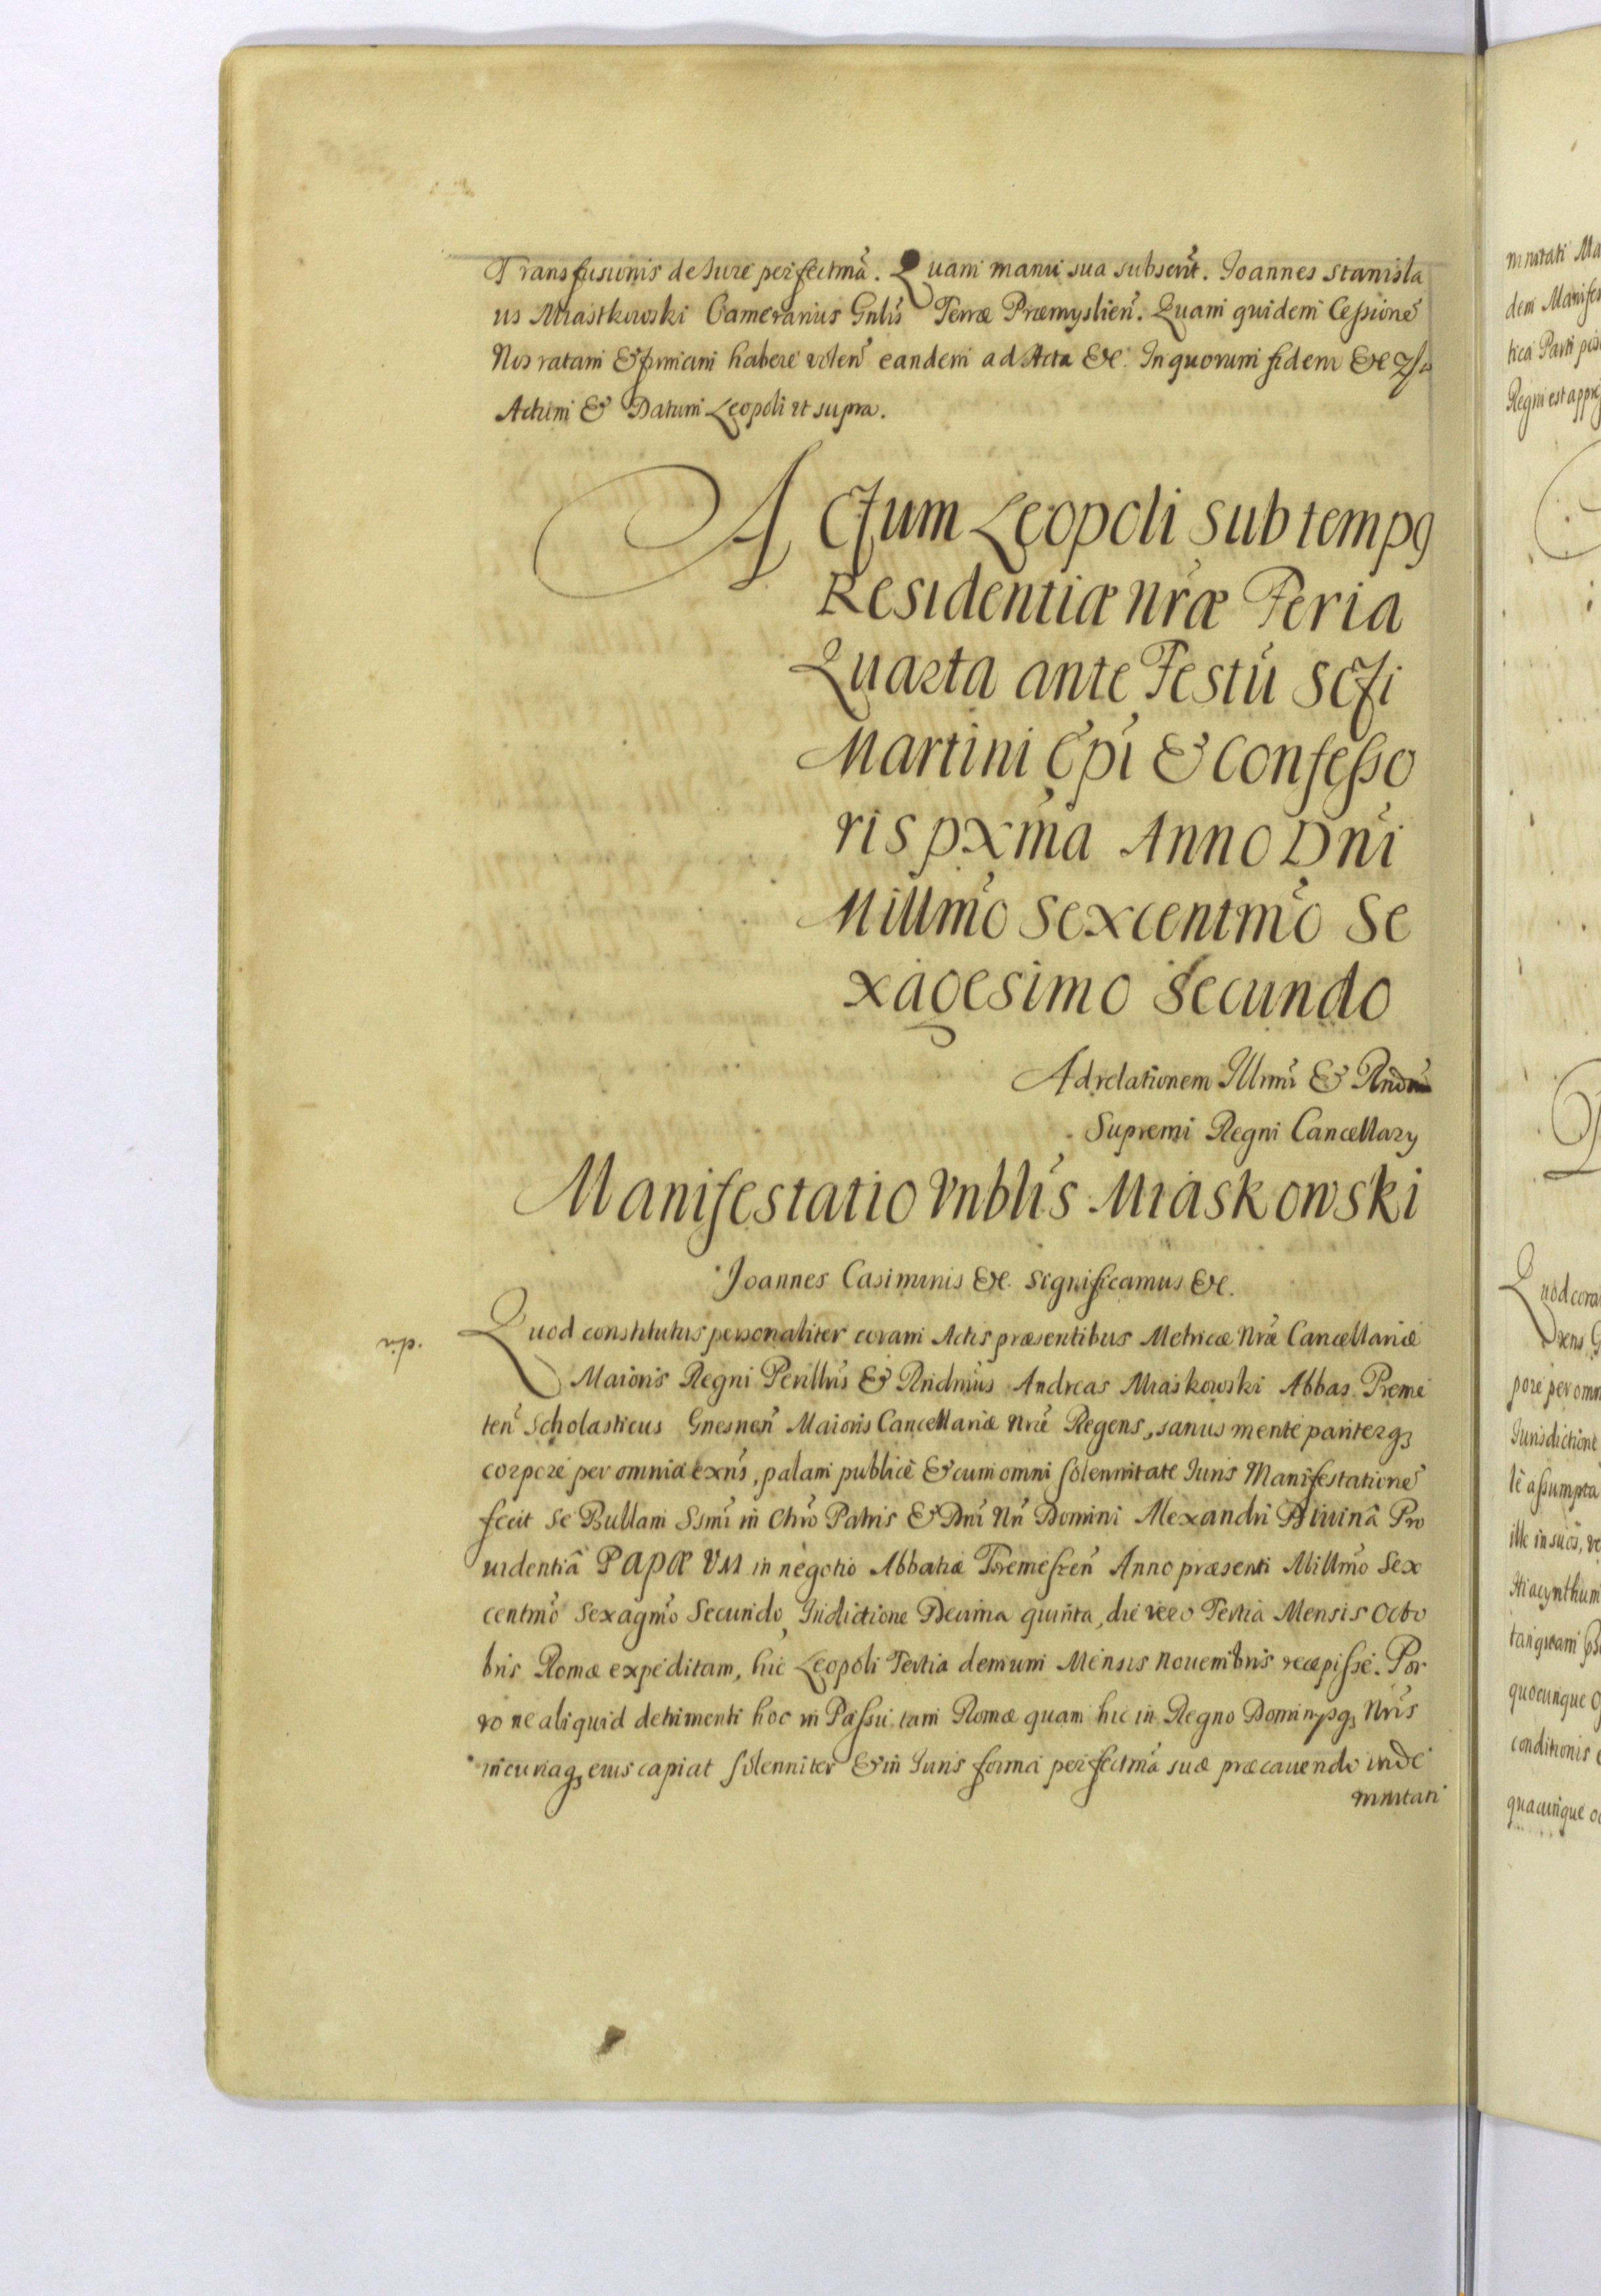 Transfusionis de Iure perfectmã. Quam manu sua subscrit̃. Joannes Stanisla
us Miastkowski Camerarius Gnlis̃ Terræ Præmyslien̄. Quam quidem Cessionẽ
Nos ratam & firmam habere volen̄ eandem ad Acta &c. In quorum fidem &c
Actum & Datum Leopoli ut supra.
ACtum Leopoli sub temp9
Residentiæ nr̃æ Feria
Quarta ante Festũ Scti
Martini Ep̃i & Confesso
ris pxm̃a Anno Dn̄i
Millm̃o sexcentm̃o se
xagesimo secundo
Ad relationem Illmi &
Supremi Regni Cancellarÿ
Manifestatio Vnblis̃ Miaskowski
Joannes Casimirus &c. significamus &c.
Quod constitutus personaliter coram Actis præsentibus Metricæ Nr̃æ Cancellariæ
Maioris Regni Perillris̃ & Rndmus̃ Andreas Miaskowski Abbas Preme
ten̄ Scholasticus Gnesnen̄ Maioris Cancellariæ Nr̃æ Regens, sanus mente pariterq3
corpore per omnia exn̄s, palam publicè & cum omni solennitate Iuris Manifestationẽ
fecit se Bullam Ssmi in Chr̃o Patris & Dn̄i Nr̃i Domini Alexandri Diuinâ Pro
uidentiâ PAPÆ VII in negotio Abbatiæ Tremeszen̄ Anno præsenti Millm̃o Sex
centm̃o Sexagm̃o Secundo, Indictione Decima quinta, die vero Tertia Mensis Octo
bris Romæ expeditam, hic Leopoli Tertia demum Mensis Nouembris recepisse. Por
ro ne aliquid detrimenti hoc in Passu tam Romæ quam hic in Regno Dominÿq3 Nr̃is
incuriaq3 eius capiat solenniter & in Iuris forma perfectmã suæ præcauendo inde
mnitati